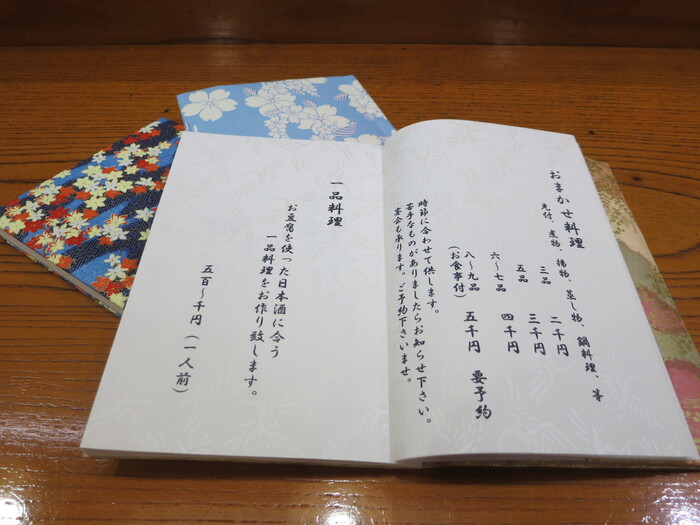 おまかせ料理
先付、煮物、揚物、蒸し物、鍋料理、等
三品 二千円
五品 三千円
六～七品 四千円
八～九品 五千円 要予約
(お食事付)
時節に合わせて供します。
苦手なものがありましたらお知らせ下さい。
宴会も承ります。ご予約下さいませ。
一品料理
お豆腐を使った日本酒に合う
一品料理をお作り致します。
五百～千円(一人前)